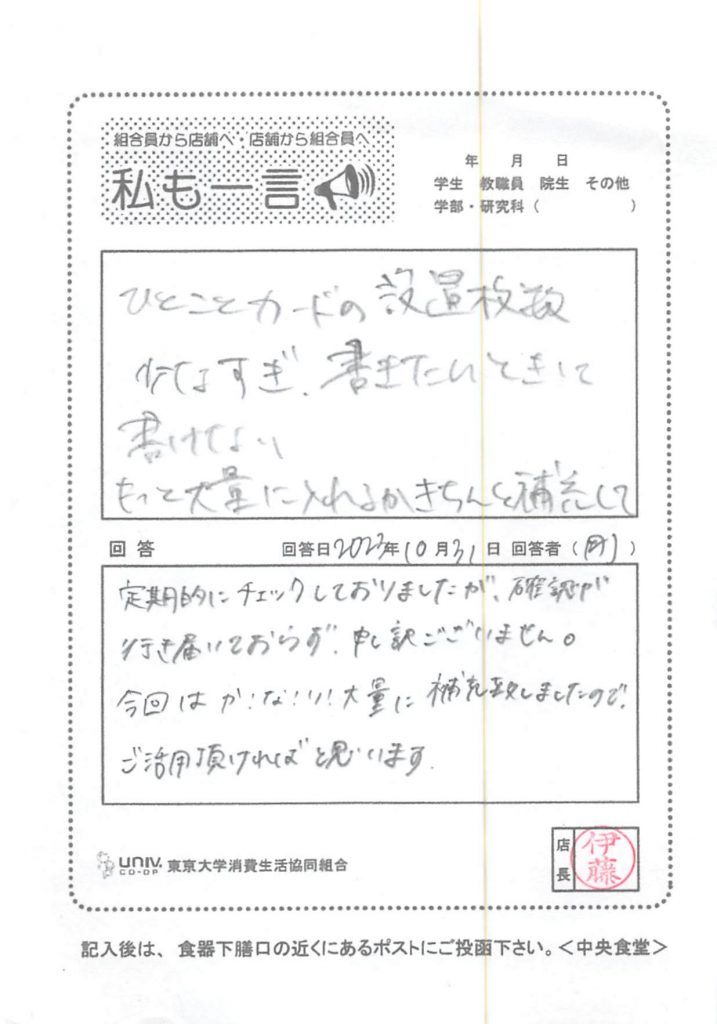 組合員から店舗へ・店舗から組合員へ
私も一言
年 月 日
学生 教職員 院生 その他
学部・研究科( )
ひとことカードの設置枚数
少なすぎ、書きたいときに
書けない
もっと大量に入れるかきちんと補充して
回答 回答日2023年10月31日 回答者( )
定期的にチェックしておりましたが、確認が
行き届いておらず、申し訳ございません。
今回はか!な!り!大量に補充致しましたので、
ご活用頂ければと思います。
UNIV. CO-OP 東京大学消費生活協同組合
店長 伊藤
記入後は、食器下膳口の近くにあるポストにご投函下さい。<中央食堂>